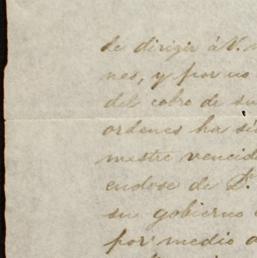 de dirigir á V.
nes, y por no
del cobro de su
ordenes ha si
mestre vencid
endose de D.
su gobierno
por medio